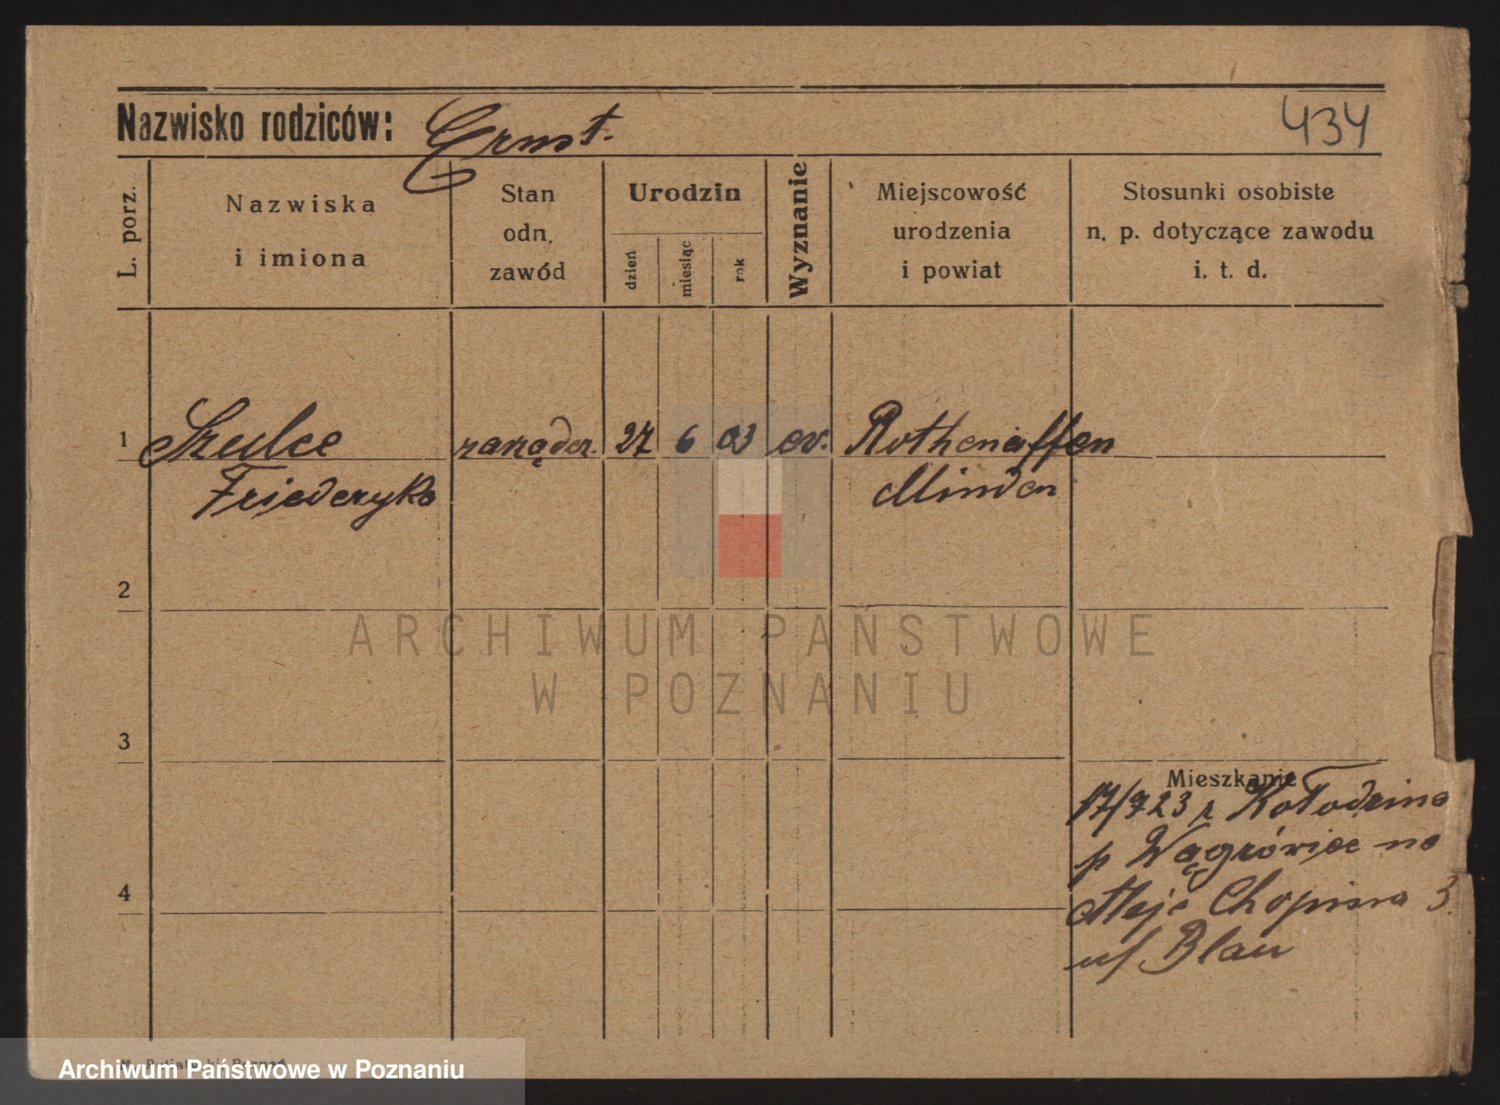 434
Nazwisko rodziców: Ernst.
L. porz.
Nazwiska
i imiona
Stan
odn.
zawód
Urodzin
dzień
miesiąc
rok
Wyznanie
Miejscowość
urodzenia
i powiat
Stosunki osobiste
n. p. dotyczące zawodu
i. t. d.
1 Szulce 27 6 03 ev.
Friederyka Minden
2
ARCHIWUM PAŃSTWOWE
W POZNANIU
3
Mieszkanie
17/7 23 z Kołodzina
p Wągrówiec na
Aleje Chopina 3.
Blau
4
Archiwum Państwowe w Poznaniu